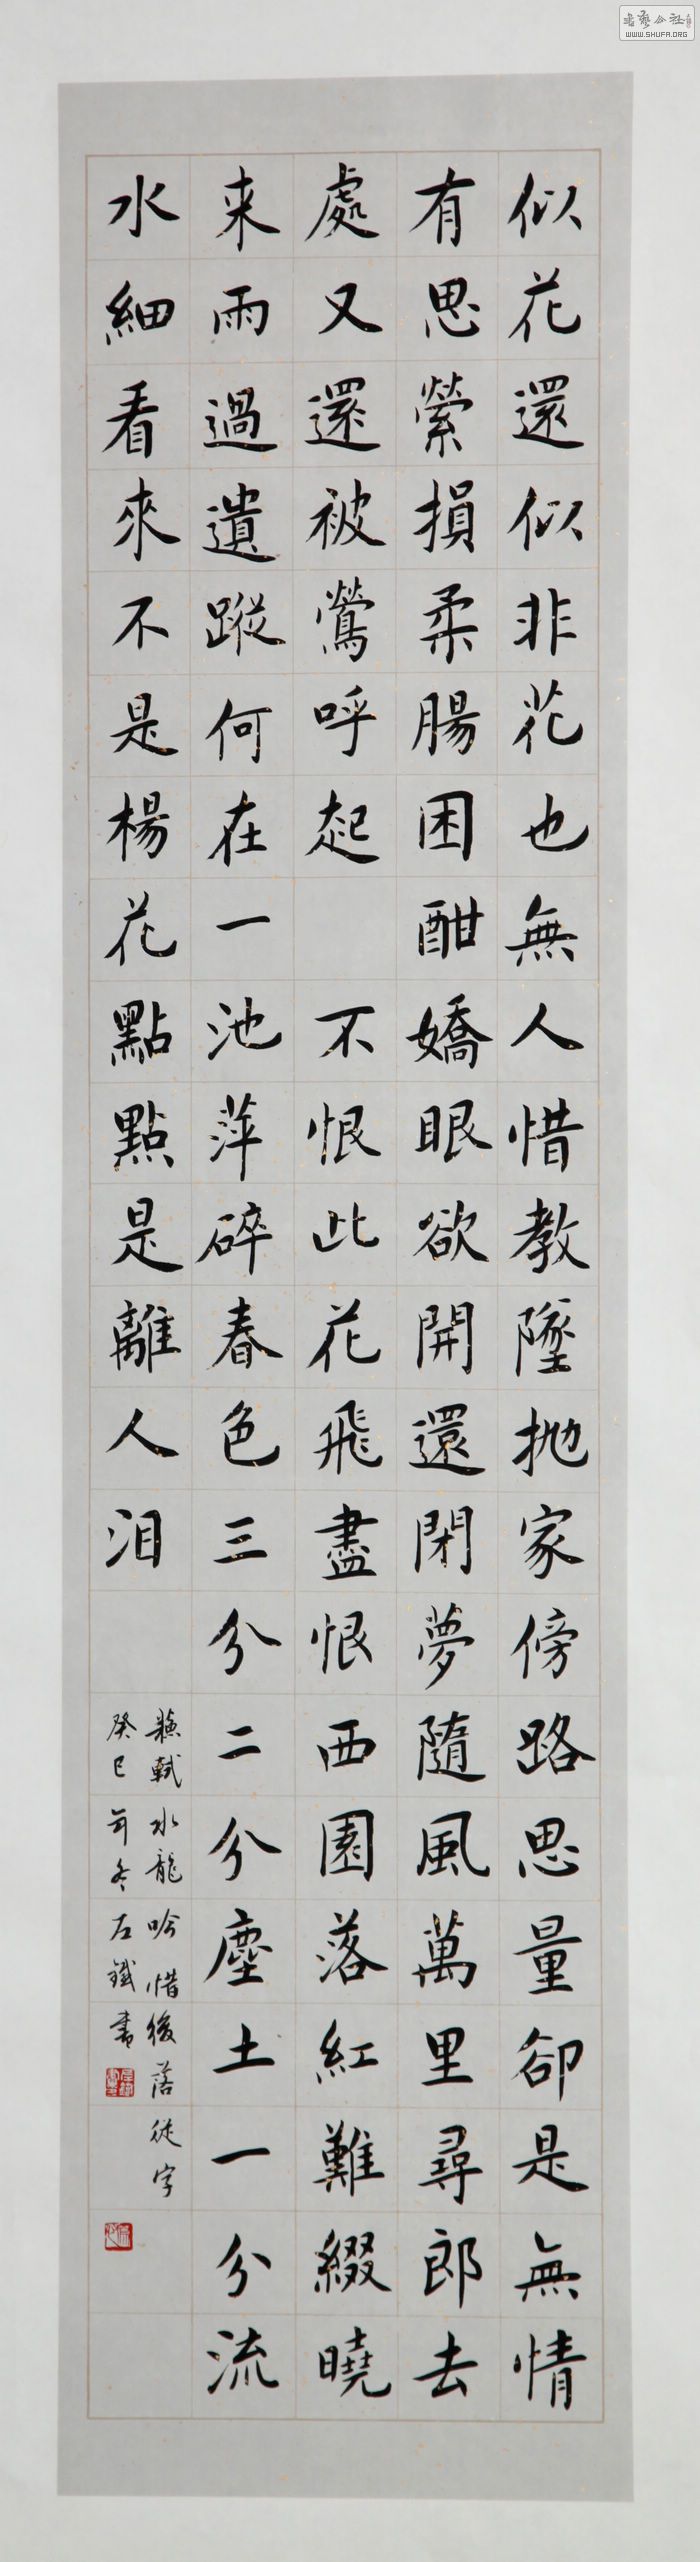 似花還似非花也無人惜教墜抛家傍路思量卻是無情
有思縈損柔腸困酣嬌眼欲開還閉夢隨風萬里尋郎去
處又還被鶯呼起 不恨此花飛盡恨西園落紅難綴曉
来雨過遺蹤何在一池萍碎春色三分二分塵土一分流
水細看來不是楊花點點是離人泪
蘇軾水龍吟惜後落從字
癸巳年冬左鐵書
書藝公社
WWW.SHUFA.ORG